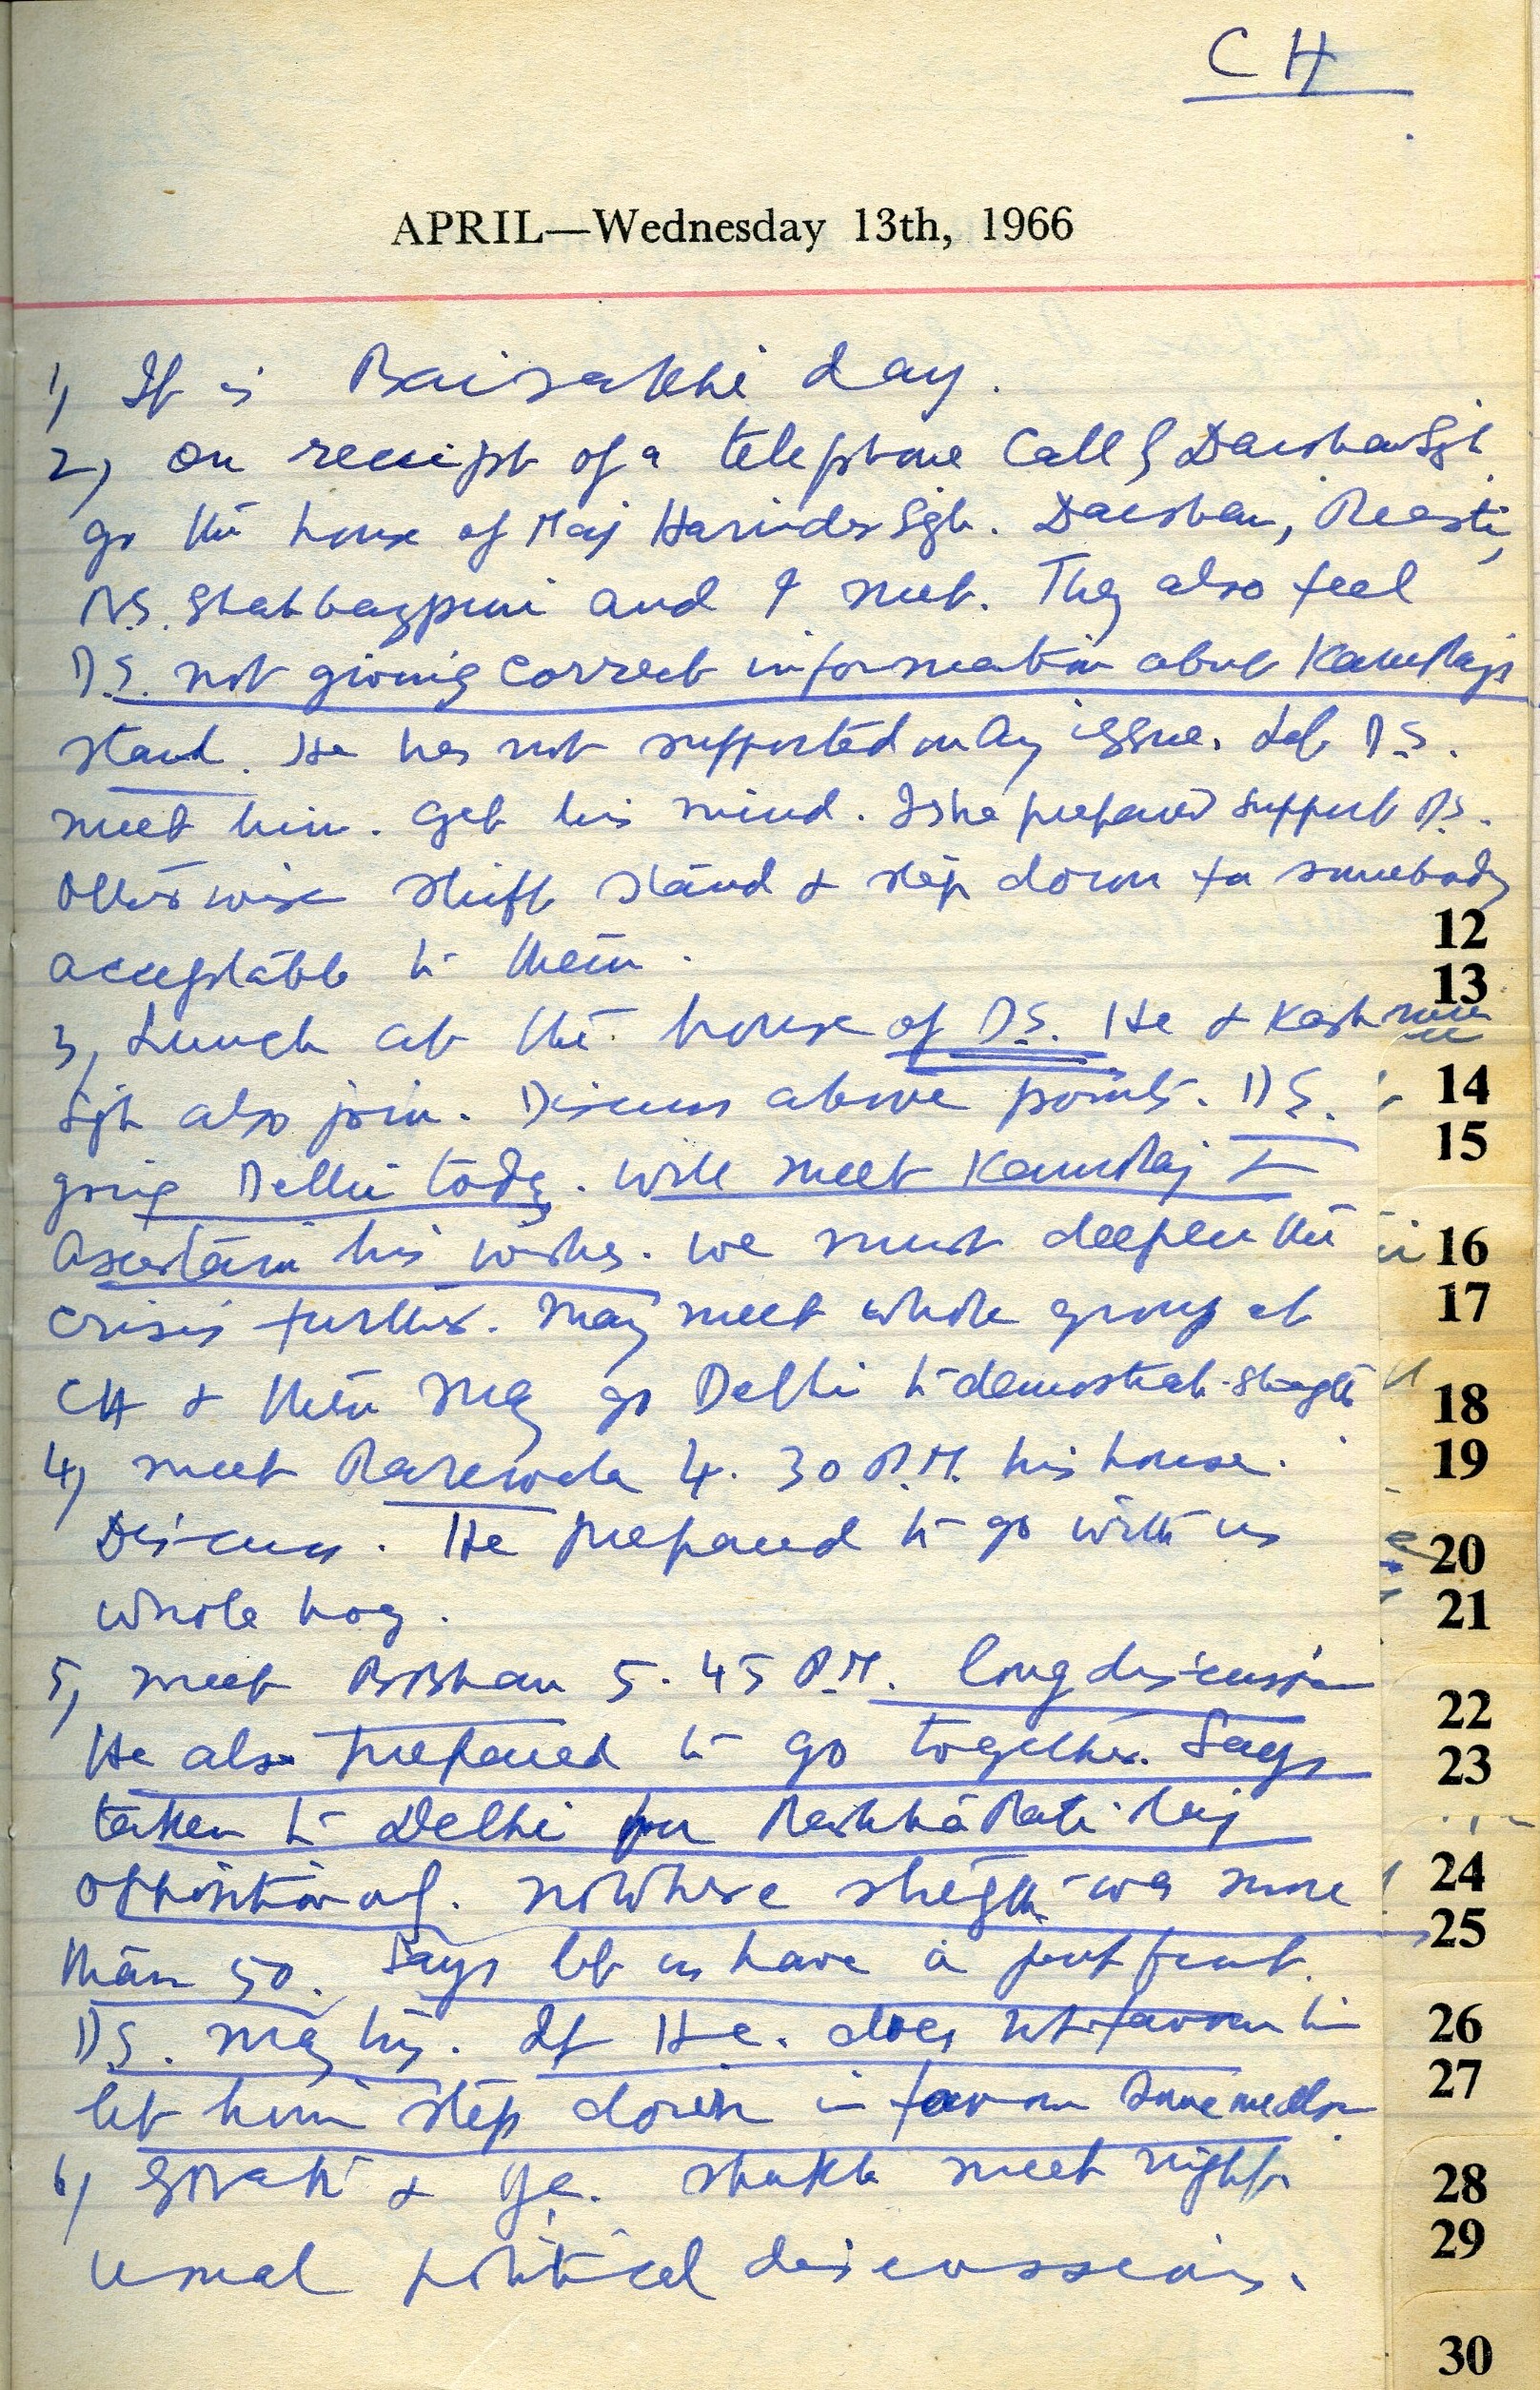 CH
APRIL—Wednesday 13th, 1966
1) It is Baisakhi day.
2) On receipt of a telephone call of Darshan Sgh
go the house of Maj Harinder Sgh. Darshan,
P.S. Shahbazpuri and I meet. They also feel
D.S. not giving correct information about KamRaj's
stand. He has not supported on any issue. Let D.S.
meet him. Get his mind. Is he prepared support D.S.
Otherwise shift stand & step down for somebody
acceptable to them.
12
13
3) Lunch at the house of D.S. He &
Sgh also join. Discuss above points. D.S.
14
15
going Delhi today. Will meet KamRaj &
ascertain his wishes. We must deepen the
16
crisis further. May meet whole group at
17
CH & then may go Delhi to demostrate strength
18
4) Meet Rarewala 4.30 P.M. his house.
19
Discuss. He prepared to go with us
20
whole hog.
21
5) Meet 5.45 P.M. long discussion
22
He also prepared to go together. Says
23
taken to Delhi for
24
opposition of. Nowhere strength was more
25
than 50. Says let us have a joint front.
D.S. may try. If He. does not favour him
26
27
let him step down in favour some
6) & meet night for
28
29
usual political discussions.
30